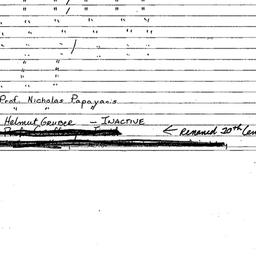 " / "
" / "
" " " "
" " " "
" / " "
" "
" "
" "
Prof. Nicholas Papayanis
" "
Helmut Gruber - INACTIVE
← renamed 20th